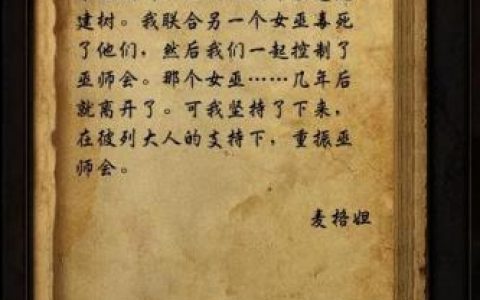 建树。我联合另一个女巫毒死
了他们，然后我们一起控制了
巫师会。那个女巫……几年后
就离开了。可我坚持了下来，
在彼列大人的支持下，重振巫
师会。
麦格妲